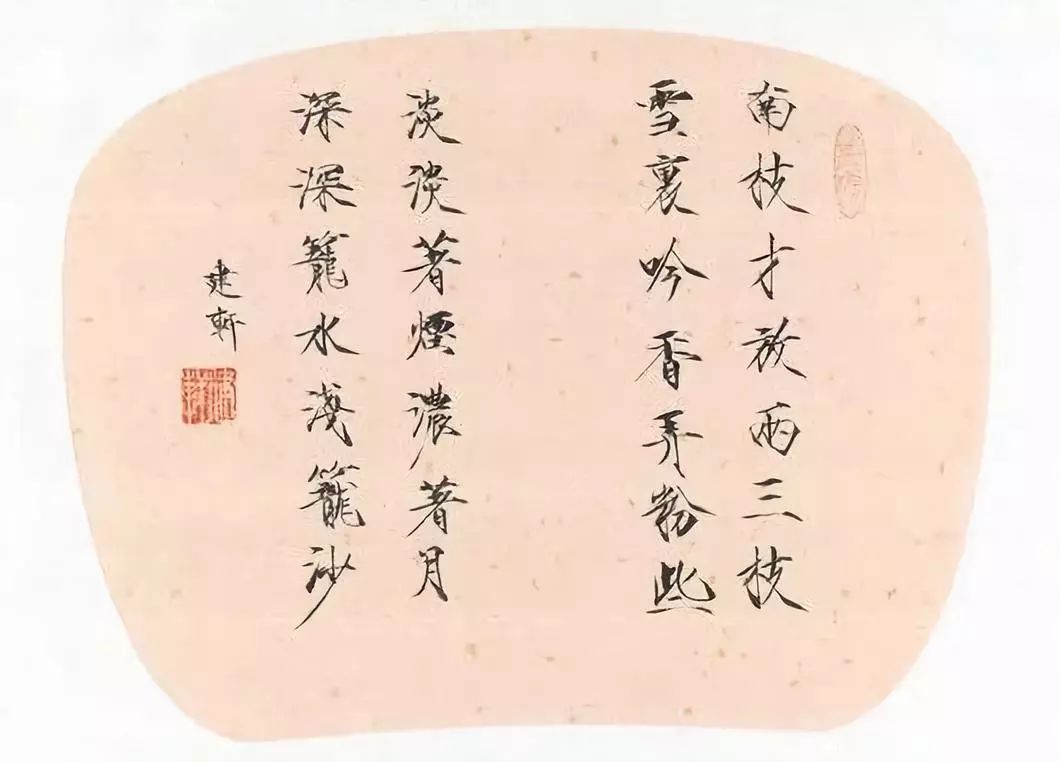 南枝才放兩三枝
雪裏吟香弄粉些
淡淡著煙濃著月
深深籠水淺籠沙
建軒